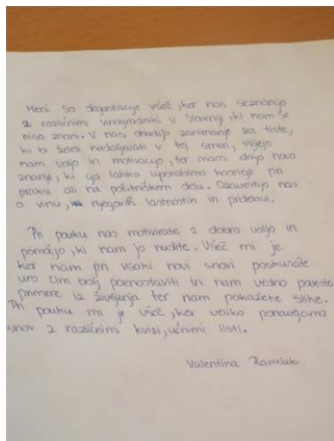 Meni so degustacije všeč, ker nas seznanijo
z različnimi vinogradniki v Sloveniji, ki nam še
niso znani. V nas obudijo zanimanje za tiste,
ki bi želeli nadaljevati v tej smeri, vlijejo
nam voljo in motivacijo, ter nam dajo novo
znanje, ki ga lahko uporabimo kasneje pri
praksi ali na počitniškem delu. Ozavestijo nas
o vinu, njegovih lastnostih in pridelavi.
Pri pouku nas motivirate z dobro voljo in
pomočjo, ki nam jo nudite. Všeč mi je
ker nam pri vsaki novi snovi poskušate
uro čim bolj poenostaviti in nam vedno poveste
primere iz življenja ter nam pokažete slike.
Pri pouku mi je všeč, ker veliko ponavljamo
snov z različnimi kvizi, učnimi listi.
Valentina